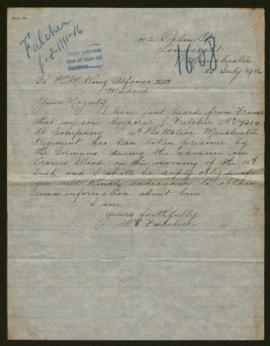 Fulcher
1608
July 1916
To H.M. King Alfonso XIII
Madrid
Your Majesty
I have just heard from France
that my son Corporal J. Fulcher No
B Company 16th Battalion Manchester
Regiment has been taken prisoner
by the Germans, during the advance on
Trones Wood, on the morning of the 10th
Inst, and I shall be deeply obliged if
you will kindly endeavour to obtain
some information about him.
I am
Yours faithfully
Fulcher